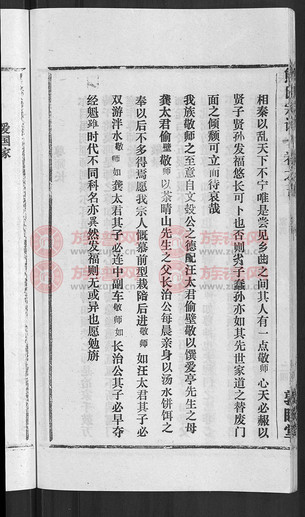 相秦以乱天下不宁唯是尝见乡曲之间其人有一点敬师心天必报以
贤子贤孙发福悠长可卜也否则劣子蠢孙亦如其先世家道之替废门
面之倾颓可立而待哀哉
我族敬师之至意自文毅公之德配汪太君偷壁敬以馔爱亭先生之母
龚太君偷壁敬师以荼晴山先生之父长治公每晨亲身以汤水饼饵之
奉以后不多得焉愿我宗人慨慕前型栽陪后进敬师如汪太君其子必
双游泮水敬师如龚太君其子必连中副车敬师如长治公其子必早夺
经魁虽时代不同科名亦异然发福则无或异也愿勉旃
敦睦堂
爱国家